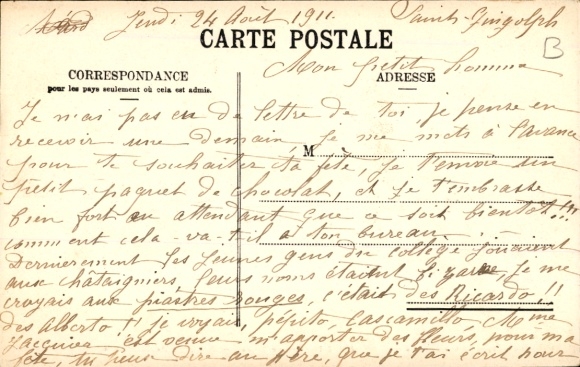 Jeudi 24 Août 1911. Saint-Gingolph
B
CARTE POSTALE
Mon petit homme
CORRESPONDANCE
ADRESSE
pour les pays seulement où cela est admis.
Je n'ai pas eu de lettre de toi, je pense en
recevoir une demain, Je me mets à l'avance
M
pour te souhaiter ta fête, Je t'envoie un
petit paquet de chocolat, et je t'embrasse
bien fort en attendant que ce soit bientôt!!!
comment cela va-t-il à ton bureau
Dernièrement les jeunes gens du collège jouaient
aux châtaigniers, leurs noms étaient si je me
croyais aux piastres Rouges, c'était des Ricardo!!
des Alberto!! Je voyais, pépito, Cascamillo, Mme
Jacquier est venue m'apporter des fleurs, pour ma
fête, tu peux dire au père, que je t'ai écrit pour